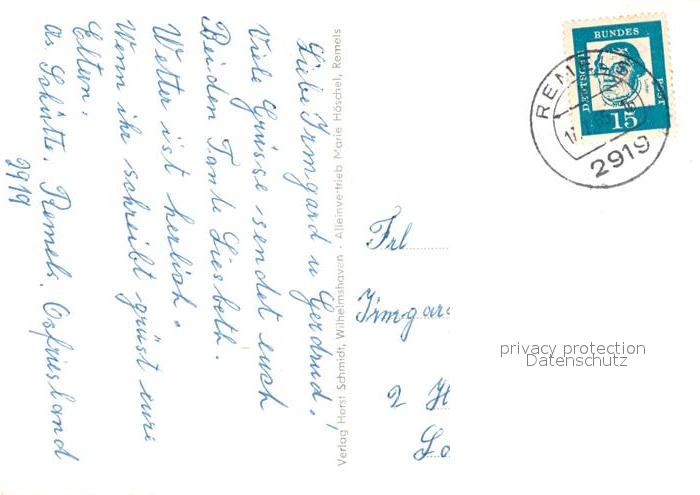 Liebe Irmgard u Gerdrud!
Viele Grüsse sendet euch
Beiden Tante Liesbeth.
Wetter ist herlich.
Wenn ihr schreibt grüst eure
Eltern.
As. Schütte. Remels. Ostfriesland
2919
Verlag Horst Schmidt, Wilhelmshaven · Alleinvertrieb Marie Höschel, Remels
Frl
Irmgard
2 H
DEUTSCHE
BUNDES
POST
15
REM
2919
privacy protection
Datenschutz